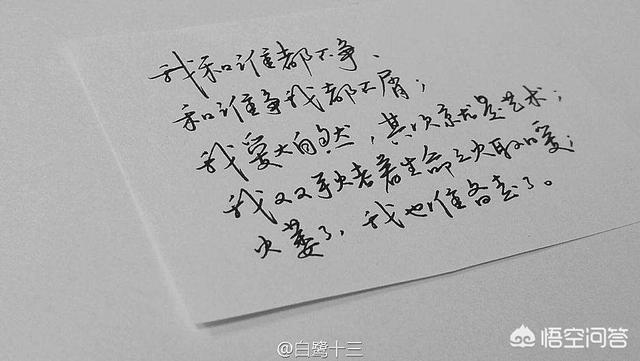 我和谁都不争、
和谁争我都不屑；
我爱大自然，其次就是艺术；
我双手烤着生命之火取暖；
火萎了，我也准备走了。
@白鹭十三
悟空问答